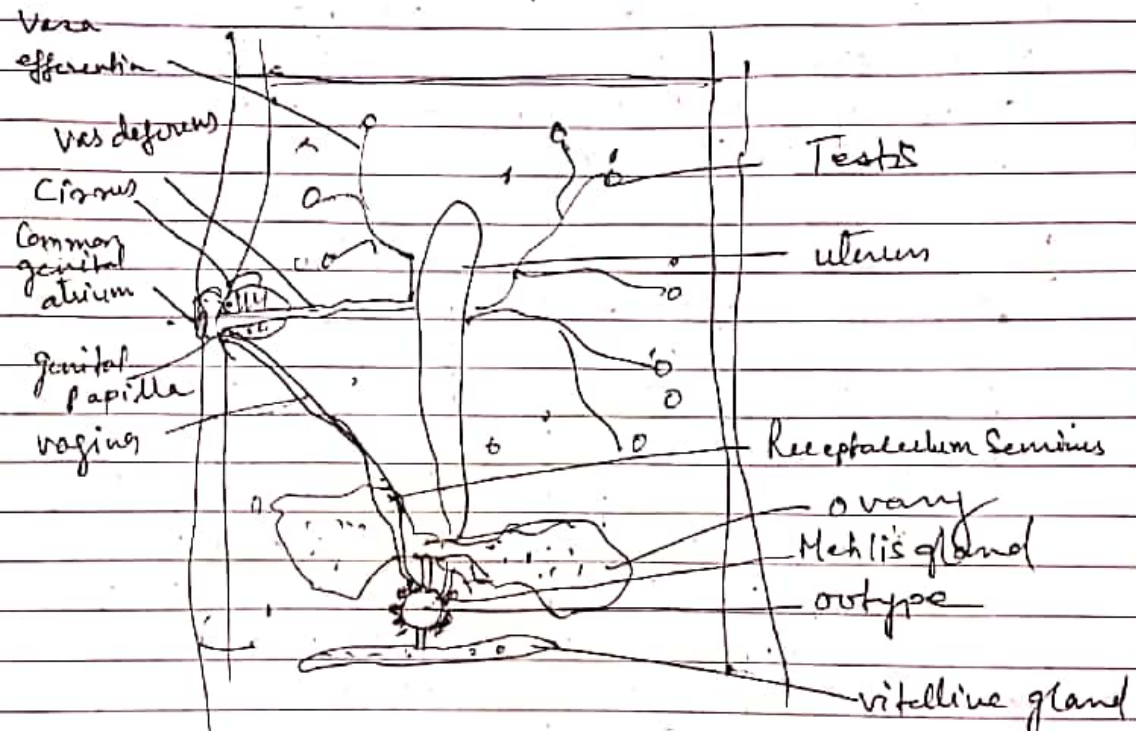 Vasa
efferentia
Vas deferens
Cirrus
Common
genital
atrium
genital
papilla
vagina
Testis
uterus
Receptaculum Seminis
ovary
Mehlis gland
ootype
vitelline gland